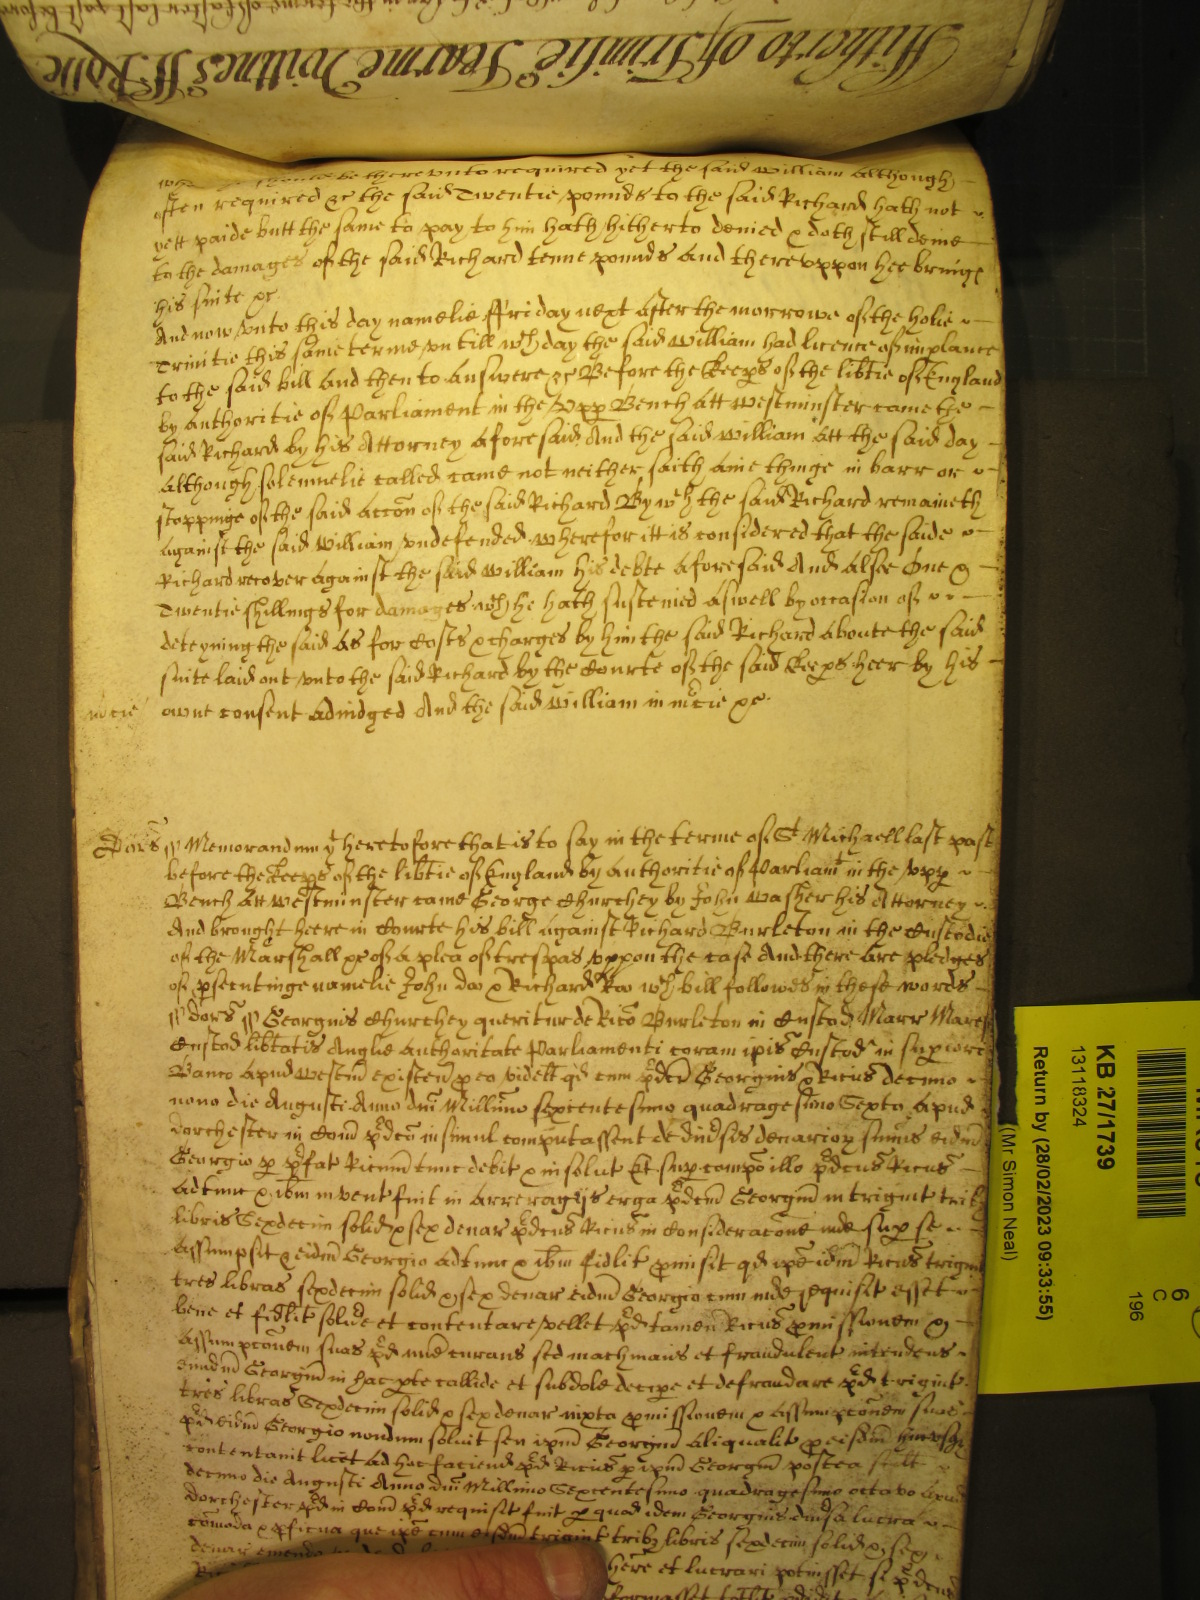 Hitherto of Trinitie Tearme Wittnes H Rolle
should be there unto required yet the said William Although
often required &c the said Twentie pounds to the said Richard hath not
yett paide butt the same to pay to him hath hitherto denied & doth still denie
to the damages of the said Richard tenne pounds And thereuppon hee bringe
his suite &c
And now unto this day namelie Ffriday next After the morrowe of the holie
Trinitie this same terme untill wch day the said William had licence of imparlance
to the said bill And then to Answere &c Before the Keeps of the libtie of England
by Authoritie of Parliament in the Upp Bench Att Westminster came the
said Richard by his Attorney Aforesaid And the said William Att the said day
Although solemnelie called came not neither saith Anie thinge in barr or
stoppinge of the said Accon of the said Richard By wch the said Richard remaineth
Against the said William undefended Wherefor itt is considered that the saide
Richard recover Against the said William his debte Aforesaid And Alsoe One &
Twentie shillings for damages wch he hath susteined Aswell by occasion of
deteyning the said As for Costs & charges by him the said Richard Aboute the said
suite laid out unto the said Richard by the Courte of the said Keeps heer by his
mcie owne consent Adiudged And the said William in mcie &c
Dors Memorandum yt heretofore that is to say in the terme of St Michaell last past
before the Keeps of the libtie of England by Authoritie of Parliamt in the Upp
Bench Att Westminster came George Churchey by John Washer his Attorney
And brought heere in Courte his bill Against Richard Burleton in the Custodie
of the Marshall &c of A plea of trespas uppon the case And there Are pledges
of psecutinge namelie John Doo & Richard Roo wch bill followes in these words
Dors Georgius Churchey queritur de Rico Burleton in Custod Marr Maresc
Custod libtatis Anglie Authoritate Parliamenti coram ipis Custod in supiore
Banco Apud Westm existen p eo videlt qd cum pdcus Georgius & Ricus decimo
nono die Augusti Anno dni Millimo sexcentesimo quadragesimo Sexto Apud
Dorchester in Com pdco insimul computassent de divsis denarior sumis eidm
Georgio p pfat Ricum tunc debit & insolut Et sup compo illo pdcus Ricus
Adtunc & ibm invent fuit in Arreragijs erga pdcm Georgium in trigint trib
libris Sexdecim solid & sex denar pdcus Ricus in Consideracone inde sup se
Assumpsit & eidm Georgio Adtunc & ibm fidlit pmisit qd ipe idm Ricus trigint
tres libras sexdecim solid & sex denar eidm Georgio cum inde requisit esset
bene et fidlit solvde et contentare vellet pd tamen Ricus pmissionem &
Assumpconem suas pd minie curans sed machinans et fraudulent intendens
eundm Georgium in hac pte callide et subdole decipe et defraudare pd trigint
tres libras Sexdecim solid & sex denar iuxta pmissionem & Assumpconem suas
pd eidm Georgio nondum solvit seu ipm Georgium Aliqualit p eisdm hucusq
contentavit licet Ad hoc faciend pd Ricus p ipm Georgium postea scilt
decimo die Augusti Anno dni Millimo Sexcentesimo quadragesimo octavo Apud
Dorchester pd in Com pd requisit fuit p quod idem Georgius divsa lucra
comoda & pficua que ipe cum eisdm trigint trib libris sexdecim solid & sex
denar emendo
here et lucrari potuisset si pdcus
KB 27/1739
13118324
Return by (28/02/2023 09:33:55)
(Mr Simon Neal)
6
C
196